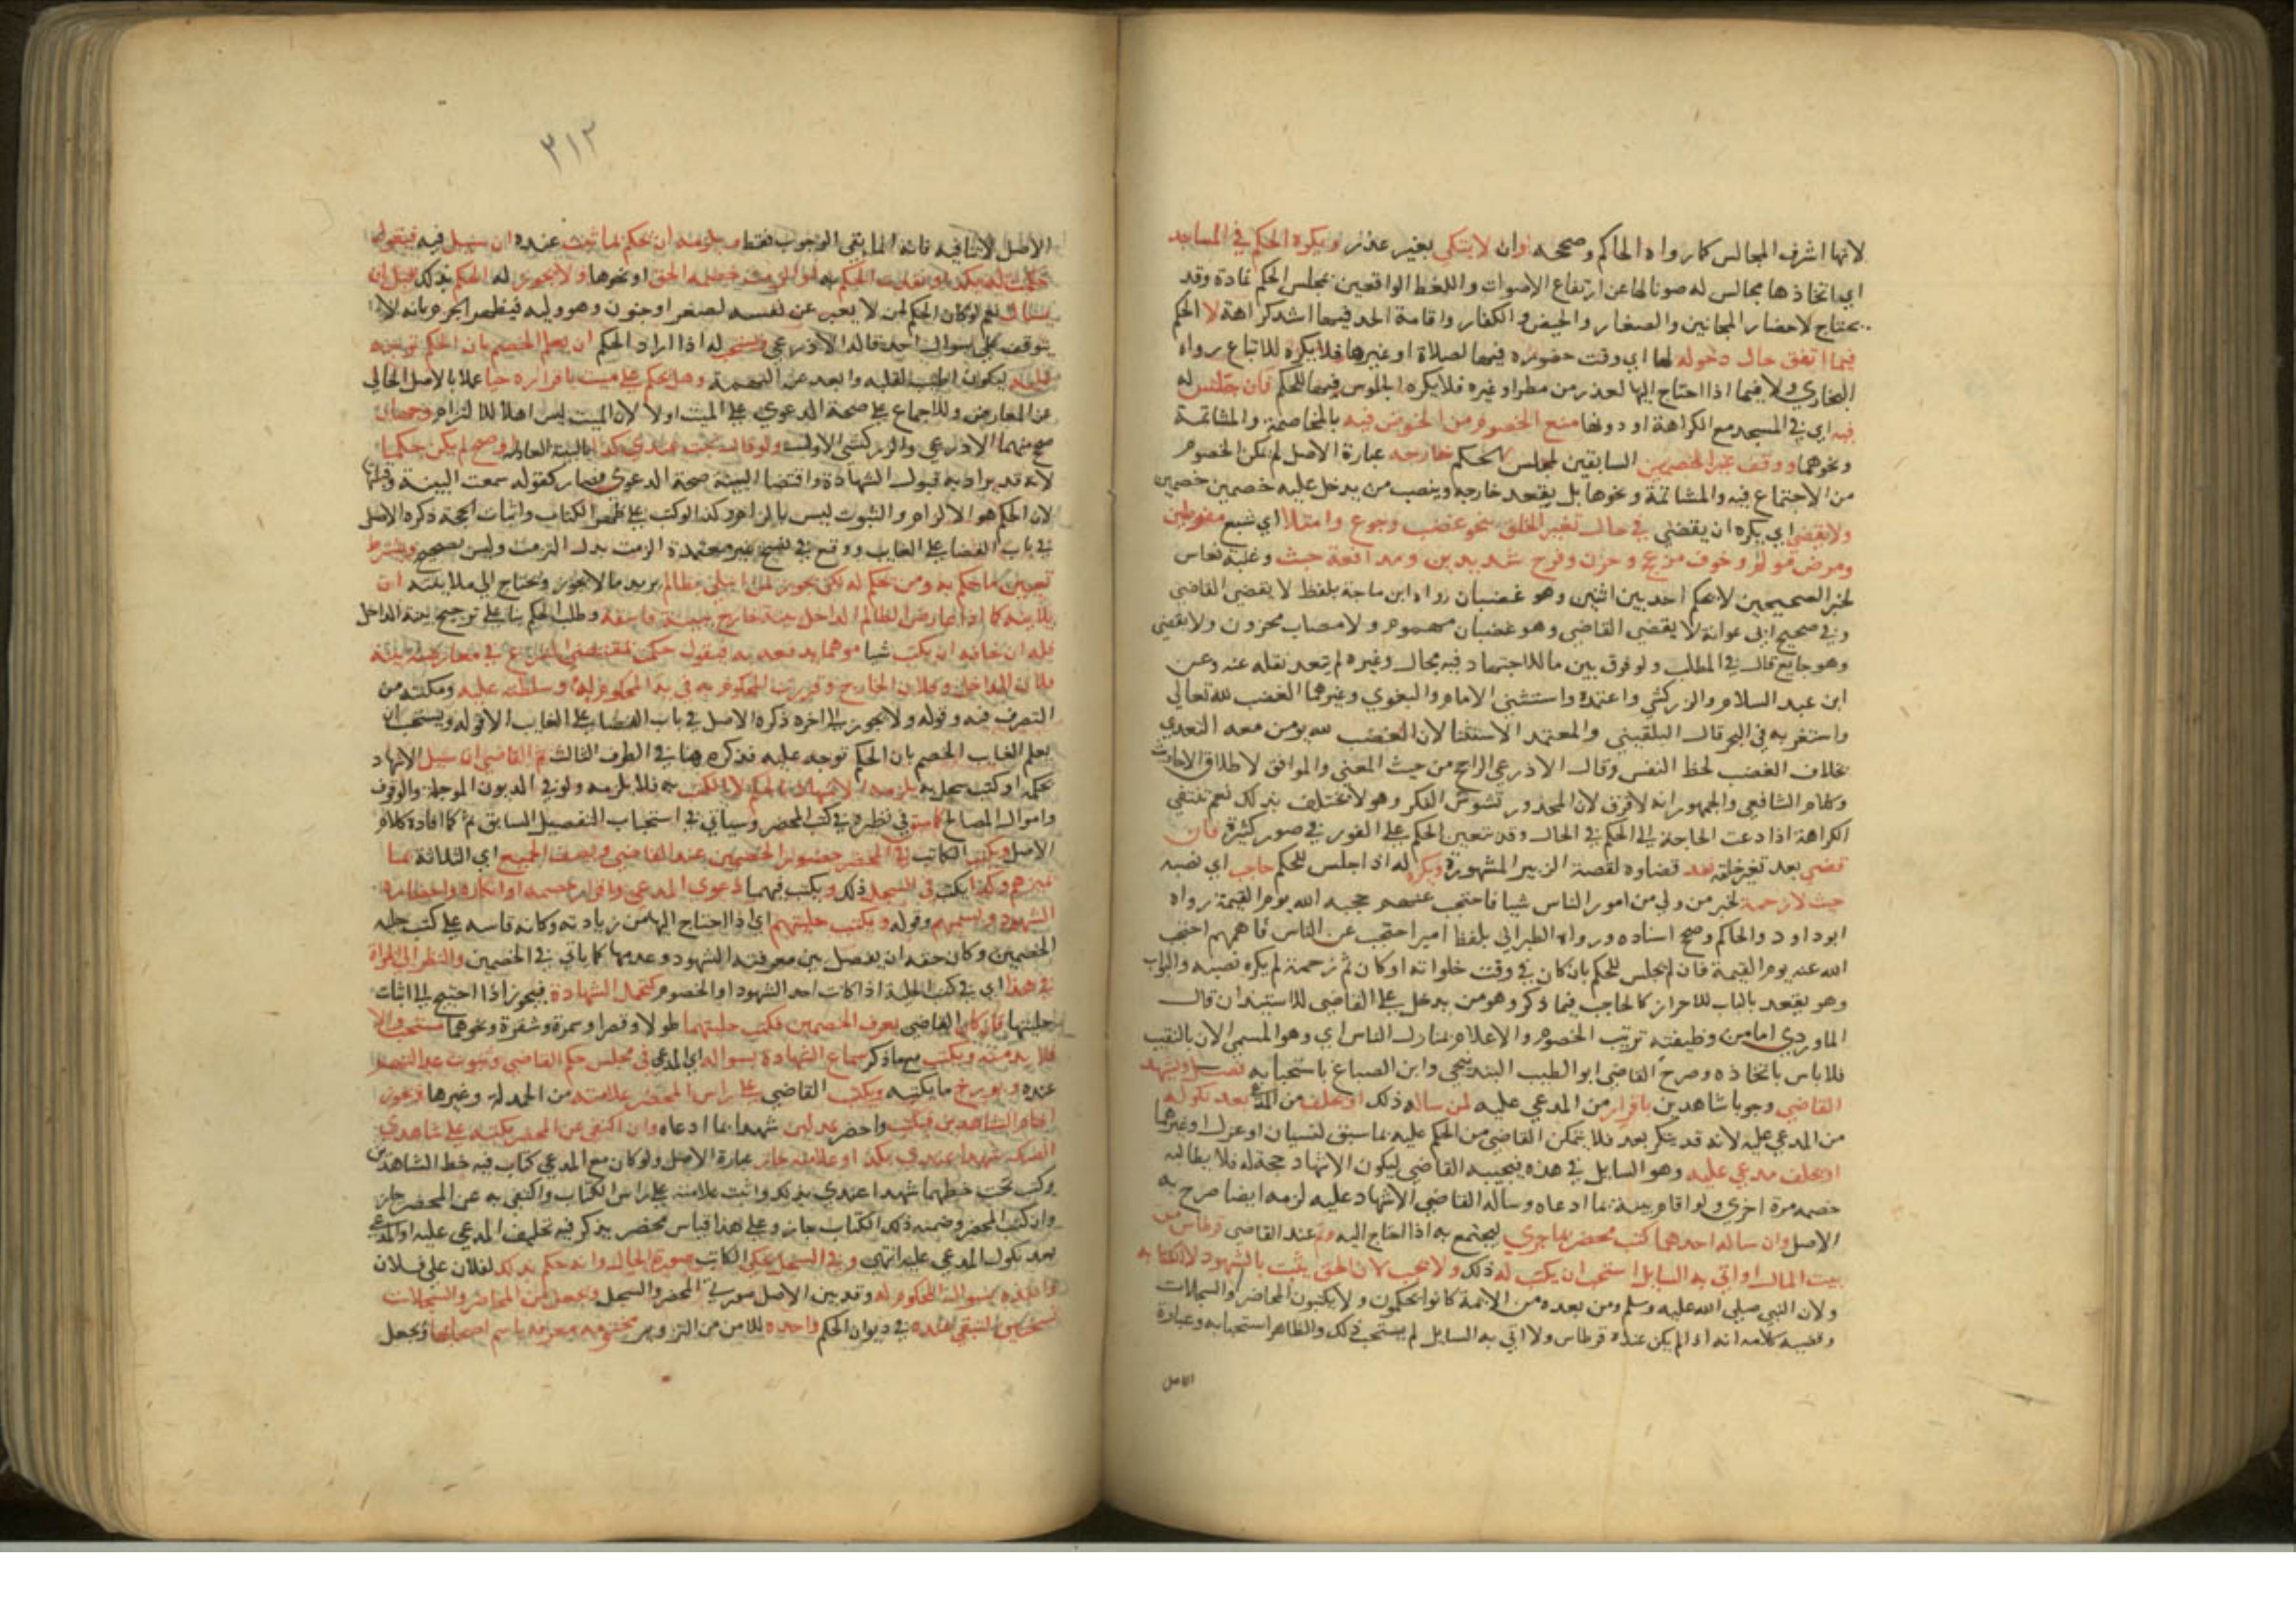 لانها اشرف المجالس كما رواه الحاكم وصححه وان لا يتكي بغير عذر ويكره الحكم في المساجد
اي اتخاذها مجالس له صونا لها عن ارتفاع الاصوات واللغط الواقعين بمجلس الحكم عادة وقد
يحتاج لاحضار المجانين والصغار والحيض والكفار واقامة الحد فيها اشد كراهة لا الحكم
فيما اتفق حال دخوله لها اي وقت حضوره فيها لصلاة او غيرها فلا يكره للاتباع رواه
البخاري ولا فيما اذا احتاج اليها لعذر من مطر او غيره فلا يكره الجلوس فيها للحكم فان جلس له
فيه اي في المسجد مع الكراهة او دونها منع الخصوم من الخوض فيه بالمخاصمة والمشاتمة
ونحوهما ووقف غير الخصمين السابقين لمجلس الحكم خارجه عبارة الاصل لم يمكن الخصوم
من الاجتماع فيه والمشاتمة ونحوها بل يقعد خارجه وينصب من يدخل عليه خصمين خصمين
ولا يقضي اي يكره ان يقضي في حال تغير الخلق بنحو غضب وجوع وامتلا اي شبع مفرطين
ومرض مولم وخوف مزعج وحزن وفرح شديدين ومدافعة خبث وغلبة نعاس
لخبر الصحيحين لا يحكم احد بين اثنين وهو غضبان رواه ابن ماجة بلفظ لا يقضي القاضي
وفي صحيح ابي عوانة لا يقضي القاضي وهو غضبان مهموم ولا مصاب محزون ولا يقضي
وهو جايع قال في المطلب ولو فرق بين ما للاجتهاد فيه مجال وغيره لم يبعد نقله عنه وعن
ابن عبد السلام والزركشي واعتمده واستثنى الامام والبغوي وغيرهما الغضب لله تعالى
واستغربه في البحر قال البلقيني والمعتمد الاستثنا لان الغضب لله يومن معه التعدي
بخلاف الغضب لحظ النفس وقال الاذرعي الراجح من حيث المعنى والموافق لاطلاق الاحاديث
وكلام الشافعي والجمهور انه لا فرق لان المحذور تشوش الفكر وهو لا يختلف بذلك نعم تنتفي
الكراهة اذا دعت الحاجة الى الحكم في الحال وقد يتعين الحكم على الفور في صور كثيرة فان
قضى بعد تغير خلقه نفذ قضاوه لقصة الزبير المشهورة ويكره له اذا جلس للحكم حاجب اي نصبه
حيث لا زحمة لخبر من ولي من امور الناس شيا فاحتجب عنهم حجبه الله يوم القيمة رواه
ابو داود والحاكم وصحح اسناده ورواه الطبراني بلفظ امير احتجب عن الناس فاهمهم احتجب
الله عنه يوم القيمة فان لم يجلس للحكم بان كان في وقت خلواته او كان ثم زحمة لم يكره نصبه والبواب
وهو يقعد بالباب للاحراز كالحاجب فيما ذكر وهو من يدخل على القاضي للاستيذان قال
الماوردي اما من وظيفته ترتيب الخصوم والاعلام بمنازل الناس اي وهو المسمى الان بالنقيب
فلا باس باتخاذه وصرح القاضي ابو الطيب البندنيجي وابن الصباغ باستحبابه فصل ويشهد
القاضي وجوبا شاهدين باقرار من المدعى عليه لمن ساله ذلك او حلف من المدعي بعد نكوله
من المدعى عليه لانه قد ينكر بعد فلا يتمكن القاضي من الحكم عليه بما سبق لنسيان او عزل او غيرهما
او بحلف مدعى عليه وهو السايل في هذه فيجيبه القاضي ليكون الاشهاد حجة له فلا يطالبه
خصمه مرة اخرى ولو اقام بينة بما ادعاه وساله القاضي الاشهاد عليه لزمه ايضا صرح به
الاصل وان ساله احدهما كتب محضر بما جرى ليحتج به اذا احتاج اليه وثم عند القاضي قرطاس من
بيت المال او اتى به السايل استحب ان يكتب له ذلك ولا يجب لان الحق يثبت بالشهود لا بالكتابة
ولان النبي صلى الله عليه وسلم ومن بعده من الايمة كانوا يحكمون ولا يكتبون المحاضر والسجلات
وقضية كلامه انه اذا لم يكن عنده قرطاس ولا اتى به السايل لم يستحب ذلك والظاهر استحبابه وعبارة
الاصل
٣١٣
الاصل لا تنافيه فانه انما نفى الوجوب فقط ويلزمه ان يحكم بما ثبت عنده ان سيل فيه فيقول
حكمت له بكذا او نفذت الحكم به او الزمت خصمه الحق او نحوها ولا يجوز له الحكم بذلك قبل ان
يسال نعم لو كان الحكم لمن لا يعبر عن نفسه لصغر او جنون وهو وليه فيظهر الجزم بانه لا
يتوقف على سوال احد قاله الاذرعي ويستحب له اذا اراد الحكم ان يعلم الخصم بان الحكم توجه
عليه ليكون اطيب لقلبه وابعد عن التهمة وهل يحكم على ميت باقراره حيا عملا بالاصل الخالي
عن المعارض وللاجماع على صحة الدعوى على الميت او لا لان الميت ليس اهلا للالتزام وجهان
صحح منهما الاذرعي والزركشي الاول ولو قال ثبت عندي كذا بالبينة العادلة او صح لم يكن حكما
لانه قد يراد به قبول الشهادة واقتضا البينة صحة الدعوى فصار كقوله سمعت البينة وقبلتها
لان الحكم هو الالزام والثبوت ليس بالزام وكذا لو كتب على ظهر الكتاب واثبات الحجة ذكره الاصل
في باب القضا على الغايب ووقع في نسخ غير معتمدة الزمت بدل التزمت وليس بصحيح ويشترط
تعيين ما يحكم به ومن يحكم له لكن يجوز لمن ابتلي بظالم يريد ما لا يجوز ويحتاج الى ملاينته ان
يلاينه كما اذا عارض الظالم الداخل بينة خارج ببينة فاسقة وطلب الحكم بنا على ترجيح بينة الداخل
فله ان خافه ان يكتب شيا موهما يدفعه به فيقول حكمت بمقتضى الشرع في معارضة بينة
فلان الداخل وفلان الخارج وقررت المحكوم به في يد المحكوم له وسلطته عليه ومكنته من
التصرف فيه وقوله ولا يجوز الى اخره ذكره الاصل في باب القضا على الغايب الا قوله ويستحب ان
يعلم الغايب الخصم بان الحكم توجه عليه فذكره هنا في الطرف الثالث ثم القاضي ان سيل الاشهاد
بحكمه او كتب سجل به يلزمه الاشهاد بالحكم لا الكتب به فلا يلزمه ولو في الديون الموجلة والوقوف
واموال المصالح كما ستوفي نظره في كتب المحضر وسياتي في استحباب التفصيل السابق ثم كما افاده كلام
الاصل ويكتب الكاتب في المحضر حضور الخصمين عند القاضي ويصف الجميع اي الثلاثة بما
يميزهم وكذا يكتب في السجل ذلك ويكتب فيهما دعوى المدعي واقرار خصمه او انكاره واحضاره
الشهود ويسميهم وقوله ويكتب حليتهم اي اذا احتاج اليها من زيادته وكانه قاسه على كتب حلية
الخصمين وكان حقه ان يفصل بين معرفته الشهود وعدمها كما ياتي في الخصمين والنظر الى المراة
في هذا اي في كتب الحلية اذا كانت احد الشهود او الخصوم كتحمل الشهادة فيجوز اذا احتيج الى اثبات
حليتها فان كان القاضي يعرف الخصمين فكتب حليتهما طولا وقصرا وسمرة وشقرة ونحوهما مستحب والا
فلا بد منه ويكتب مع ما ذكر سماع الشهادة بسواله اي المدعي في مجلس حكم القاضي وثبوت عدالتهم
عنده ويورخ ما يكتبه ويكتب القاضي على راس المحضر علامته من الحمدلة وغيرها فرعون
اقام الشاهدين فيكتب واحضر عدلين شهدا بما ادعاه وان اكتفى عن المحضر بكتبه على شاهدي
الصك شهدا عندي بكذا او علامته جاز عبارة الاصل ولو كان مع المدعي كتاب فيه خط الشاهدين
وكتب تحت خطهما شهدا عندي بذلك واثبت علامته على راس الكتاب واكتفى به عن المحضر جاز
وان كتب المحضر وضمنه ذلك الكتاب جاز وعلى هذا قياس محضر يذكر فيه تحليف المدعى عليه او المدعي
بعد نكول المدعى عليه انتهى وفي السجل يحكي الكاتب صورة الحال وانه حكم بذلك لفلان على فلان
وانفذه بسوال المحكوم له وقد بين الاصل صورتي المحضر والسجل ويجعل من المحاضر والسجلات
نسختين لتبقى عنده في ديوان الحكم واحدة للامن من التزوير مختومة معرفة باسم اصحابها ويجعل